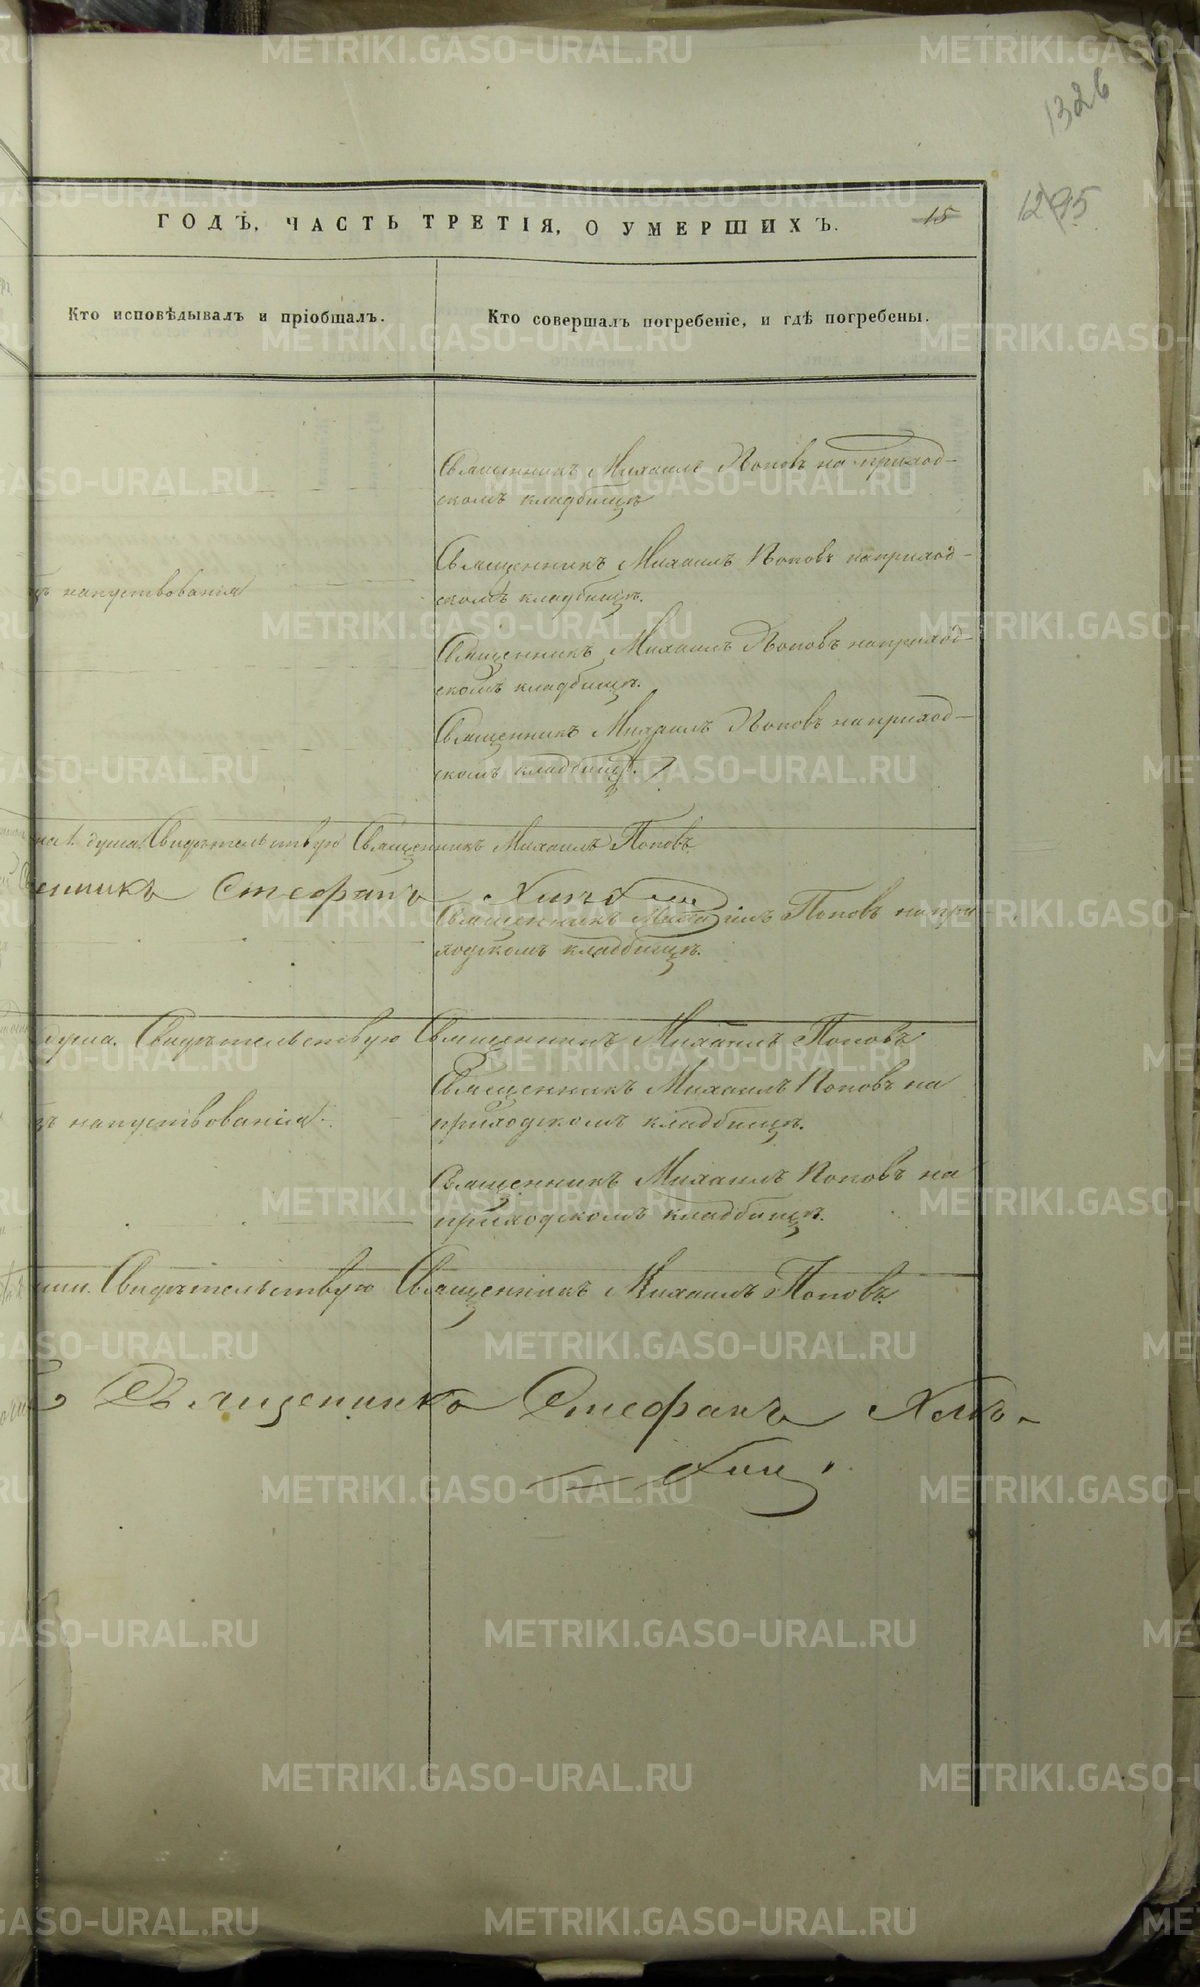 1326
1295
ГОДЪ, ЧАСТЬ ТРЕТІЯ, О УМЕРШИХЪ. 15
Кто исповѣдывалъ и пріобщалъ.
Кто совершалъ погребеніе, и гдѣ погребены.
Священникъ Михаилъ Поповъ на приход-
скомъ кладбищѣ
Священникъ Михаилъ Поповъ на приход-
скомъ кладбищѣ.
напутствованія
Священникъ Михаилъ Поповъ на приход-
скомъ кладбищѣ.
Священникъ Михаилъ Поповъ на приход-
скомъ кладбищѣ.
душа. Свидѣтельствую Священникъ Михаилъ Поповъ.
Стефанъ
Священникъ Михаилъ Поповъ на при-
ходскомъ кладбищѣ.
душа. Свидѣтельствую Священникъ Михаилъ Поповъ.
Священникъ Михаилъ Поповъ на
приходскомъ кладбищѣ.
напутствованія.
Священникъ Михаилъ Поповъ на
приходскомъ кладбищѣ.
Свидѣтельствую Священникъ Михаилъ Поповъ.
Священникъ Стефанъ
METRIKI.GASO-URAL.RU